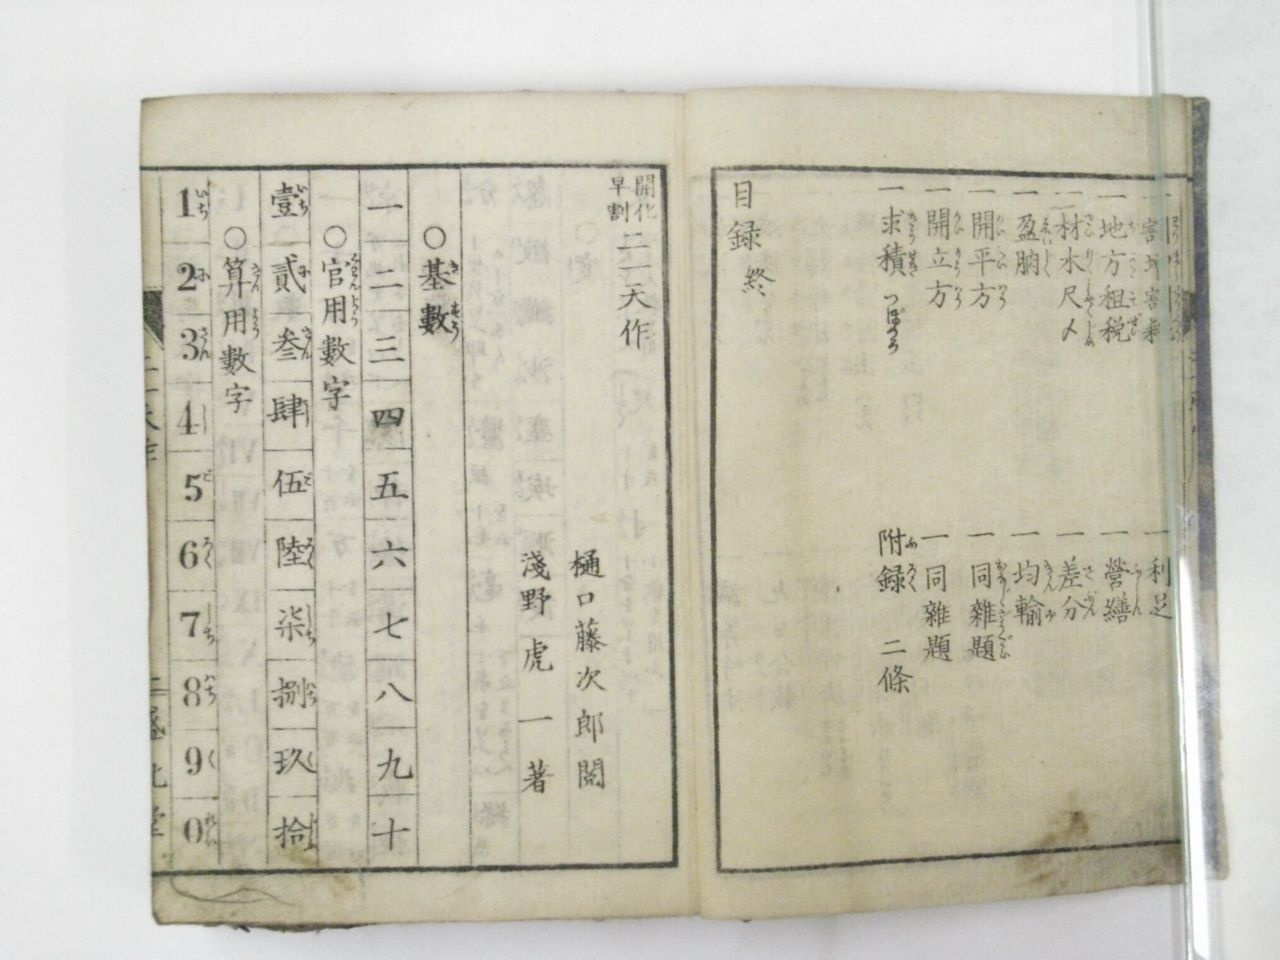 一 割圷害利
一 地方租税
一 材木尺〆
一 盈朒
一 開平方
一 開立方
一 求積
一 利足
一 營繕
一 差分
一 均輸
一 同雜題
一 同雜題
附録 二條
目録終
開化
早割
二一天作
樋口藤次郎閲
淺野虎一著
○基數
一 二 三 四 五 六 七 八 九 十
○官用數字
壹 貳 叁 肆 伍 陸 柒 捌 玖 拾
○算用數字
1 2 3 4 5 6 7 8 9 0